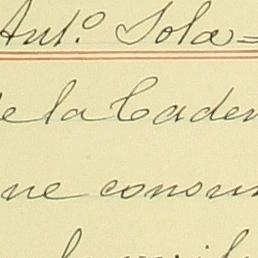 Ant.º Sola=
e la Caden
ne consum